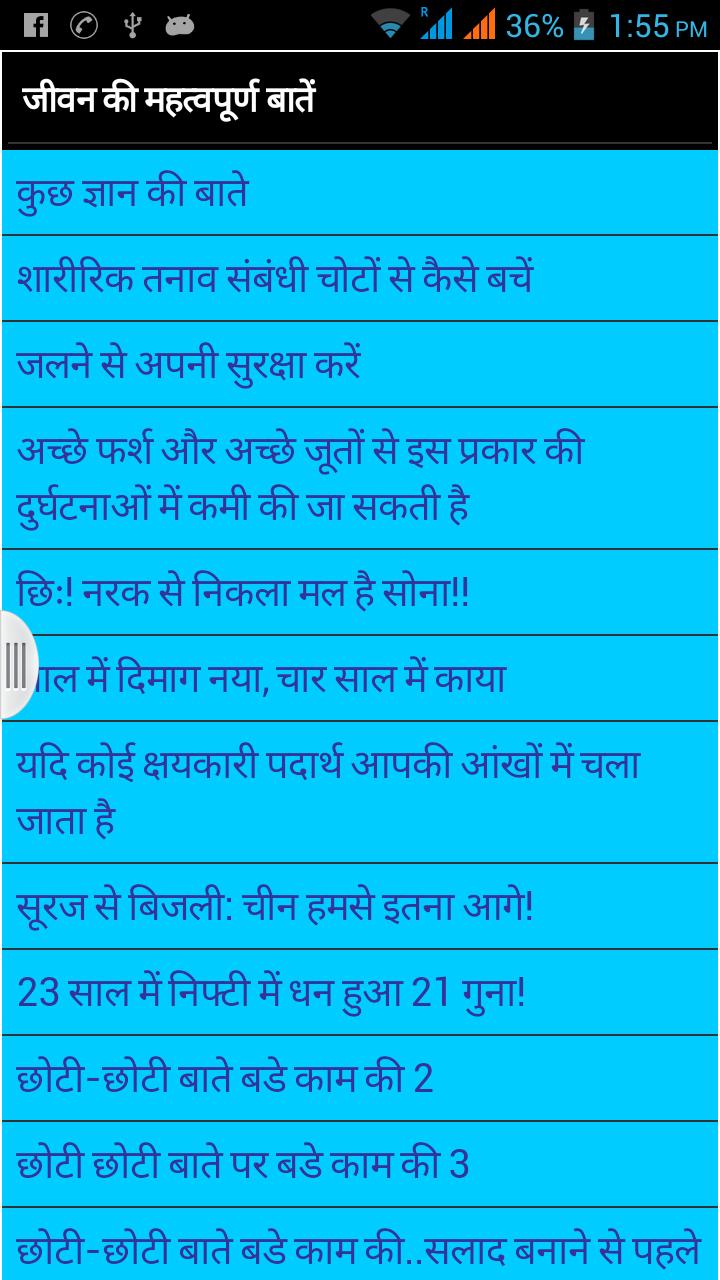 R 36% 1:55 PM
जीवन की महत्वपूर्ण बातें
कुछ ज्ञान की बाते
शारीरिक तनाव संबंधी चोटों से कैसे बचें
जलने से अपनी सुरक्षा करें
अच्छे फर्श और अच्छे जूतों से इस प्रकार की
दुर्घटनाओं में कमी की जा सकती है
छिः! नरक से निकला मल है सोना!!
में दिमाग नया, चार साल में काया
यदि कोई क्षयकारी पदार्थ आपकी आंखों में चला
जाता है
सूरज से बिजली: चीन हमसे इतना आगे!
23 साल में निफ्टी में धन हुआ 21 गुना!
छोटी-छोटी बाते बडे काम की 2
छोटी छोटी बाते पर बडे काम की 3
छोटी-छोटी बाते बडे काम की..सलाद बनाने से पहले